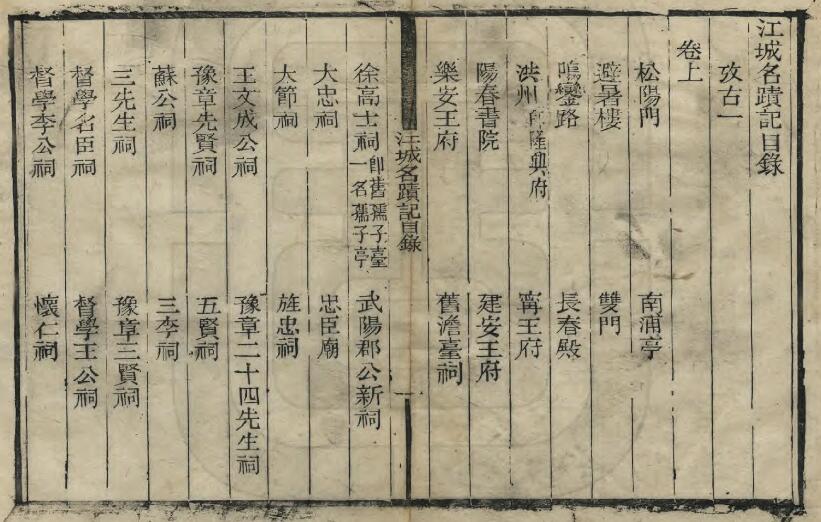 江城名蹟記目錄
攷古一
卷上
松陽門 南浦亭
避暑樓 雙門
鳴鑾路 長春殿
洪州即隆興府 寗王府
陽春書院 建安王府
樂安王府 舊澹臺祠
江城名蹟記目錄
徐高士祠 即舊孺子臺 一名孺子亭 武陽郡公新祠
大忠祠 忠臣廟
大節祠 旌忠祠
王文成公祠 豫章二十四先生祠
豫章先賢祠 五賢祠
蘇公祠 三李祠
三先生祠 豫章三賢祠
督學名臣祠 督學王公祠
督學李公祠 懷仁祠